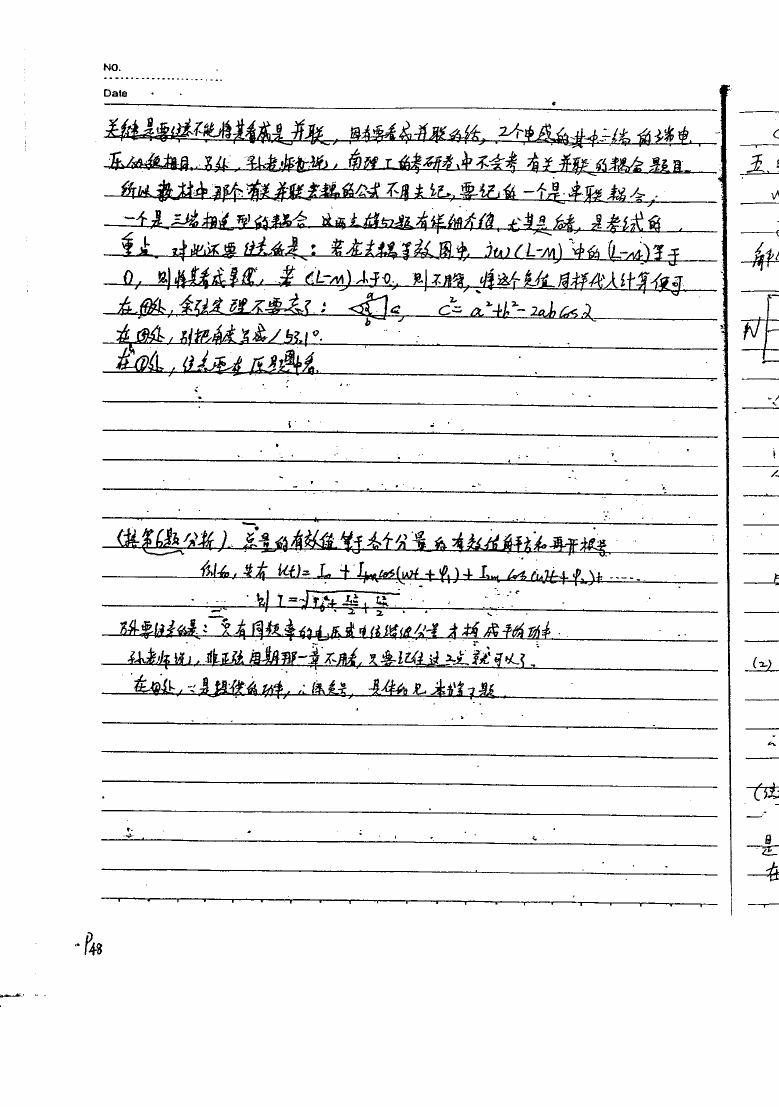 NO.
Date
关键是要注意不能将其看成是并联，因为要看成并联的话，2个电感的其中一端的端电
压必须相同。另外，孙老师也说，南理工的考研卷中不会考有关并联的耦合题目。
所以教材中那个有关并联去耦的公式不用去记，要记的一个是串联耦合；
一个是三端相连型的耦合。有详细介绍，尤其是后者，是考试的
重点。对此还要注意的是：若在去耦等效图中，jw(L-M)中的(L-M)等于
0，则将其看成导线，若(L-M)小于0，则不用管，将这个负值同样代入计算便可
在④处，余弦定理不要忘了： a b c α， c²=a²+b²-2abcosα
在 处，别把角度写成/53.1°.
在①处，注意还在原题图中看
(接第6题分析). 总量的有效值等于各个分量的有效值的平方和再开根号
例如，若有i(t)= I₀ + I₁ₘcos(wt+φ₁)+I₂ₘcos(2wt+φ₂)+······
则 I=
另外要注意的是：只有同频率的电压或电流谐波分量才构成平均功率
孙老师说，非正弦周期那一章不用看，只要记住这2点就可以了。
在④处，∵是提供的功率，∴ 负号，具体的见 题
P48
五、
解
N
(2)
(注
是
在